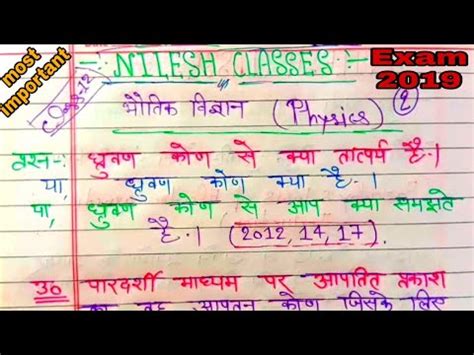 most important
:- NILESH CLASSES :-
Exam 2019
Class-12
भौतिक विज्ञान (Physics) 2
प्रश्न-: ध्रुवण कोण से क्या तात्पर्य है।
या, ध्रुवण कोण क्या है।
या, ध्रुवण कोण से आप क्या समझते
है। (2012, 14, 17).
उ० पारदर्शी माध्यम पर आपतित प्रकाश
का वह आपतन कोण जिसके लिए